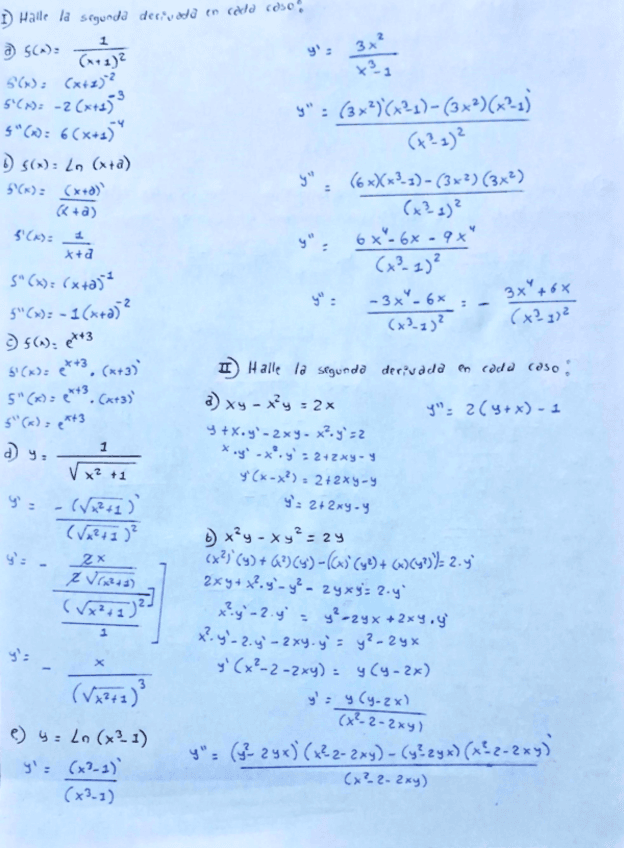 I) Halle la segunda derivada en cada caso:
a) f(x) = 1 / (x+1)²
f'(x) = (x+1)⁻²
f'(x) = -2(x+1)⁻³
f''(x) = 6(x+1)⁻⁴
b) f(x) = Ln (x+a)
f'(x) = (x+a)' / (x+a)
f'(x) = 1 / x+a
f''(x) = (x+a)⁻¹
f''(x) = -1(x+a)⁻²
c) f(x) = e^x+3
f'(x) = e^x+3 . (x+3)'
f''(x) = e^x+3 . (x+3)'
f''(x) = e^x+3
d) y = 1 / √x²+1
y' = -(√x²+1)' / (√x²+1)²
y' = - 2x / 2√(x²+1) / (√x²+1)² / 1
y' = - x / (√x²+1)³
e) y = Ln (x³-1)
y' = (x³-1)' / (x³-1)
y' = 3x² / x³-1
y'' = (3x²)'(x³-1) - (3x²)(x³-1)' / (x³-1)²
y'' = (6x)(x³-1) - (3x²)(3x²) / (x³-1)²
y'' = 6x⁴-6x - 9x⁴ / (x³-1)²
y'' = -3x⁴-6x / (x³-1)² = - 3x⁴+6x / (x³-1)²
II) Halle la segunda derivada en cada caso:
a) xy - x²y = 2x
y + x.y' - 2xy - x².y' = 2
x.y' - x².y' = 2+2xy - y
y'(x-x²) = 2+2xy-y
y' = 2+2xy-y
y'' = 2(y+x) - 1
b) x²y - xy² = 2y
(x²)'(y) + (x²)(y') - ((x)'(y²) + (x)(y²)') = 2.y'
2xy + x².y' - y² - 2yxy' = 2.y'
x².y' - 2.y' = y² - 2yx + 2xy.y'
x².y' - 2.y' - 2xy.y' = y² - 2yx
y'(x²-2-2xy) = y(y-2x)
y' = y(y-2x) / (x²-2-2xy)
y'' = (y²-2yx)'(x²-2-2xy) - (y²-2yx)(x²-2-2xy)' / (x²-2-2xy)